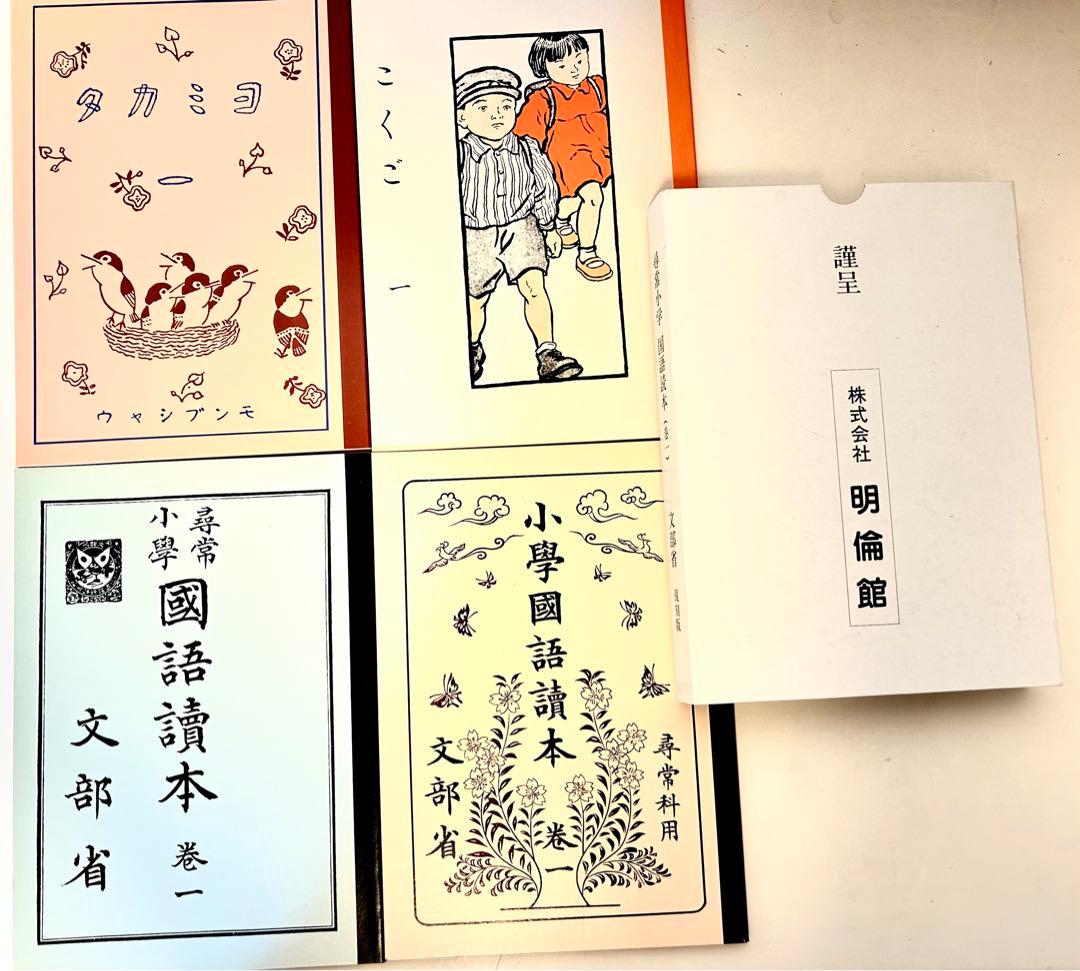 ヨミカタ
一
モンブシャウ
こくご
一
尋常
小學
國語讀本
巻一
文部省
小學國語讀本
巻一
尋常科用
文部省
尋常小学 国語読本(巻一) 文部省 復刻版
謹呈
株式会社 明倫館